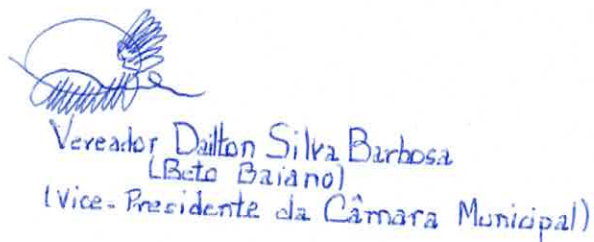 Vereador Dailton Silva Barbosa
(Beto Baiano)
(Vice-Presidente da Câmara Municipal)